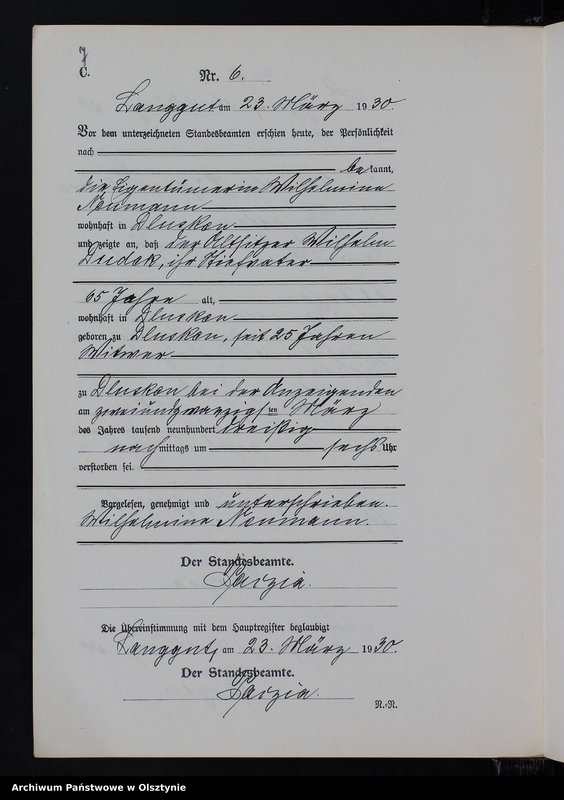 7
C.
Nr. 6.
Langgut am 23. März 1930.
Vor dem unterzeichneten Standesbeamten erschien heute, der Persönlichkeit
nach
bekannt,
die Eigentümerin Wilhelmine
Neumann
wohnhaft in Dluskon
und zeigte an, daß der Altsitzer Wilhelm
Dudek, ihr Stiefvater
65 Jahre alt,
wohnhaft in Dluskon
geboren zu Dluskon, seit 25 Jahren
Witwer
zu Dluskon bei der Anzeigenden
am zweiundzwanzigsten März
des Jahres tausend neunhundert dreißig
nachmittags um sechs Uhr
verstorben sei.
Vorgelesen, genehmigt und unterschrieben.
Wilhelmine Neumann.
Der Standesbeamte.
Die Übereinstimmung mit dem Hauptregister beglaubigt
Langgut, am 23. März 1930.
Der Standesbeamte.
N.-R.
Archiwum Państwowe w Olsztynie